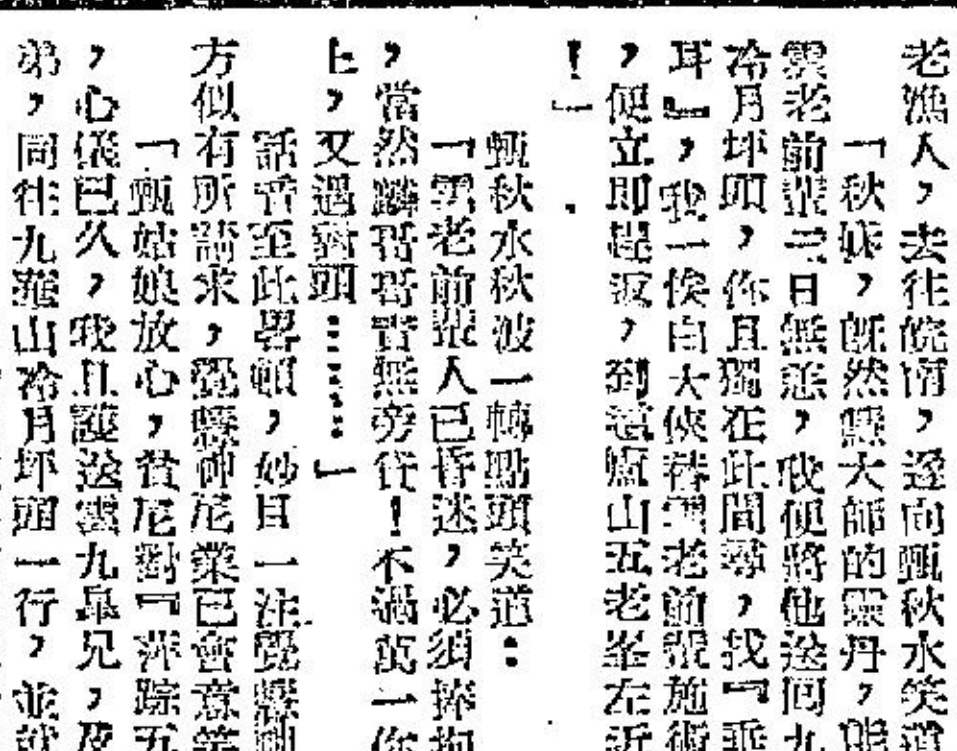 老漁人，去往皖南，遂向甄秋水笑道
「秋妹，既然大師的靈丹，能
雲老前輩三日無恙，我便將他送回九
冷月坪頭，你且獨在此間尋，找『乖
耳』，我一俟白大俠替雲老前輩施術
，便立即趕返，到廬山五老峯左近
！」
甄秋水秋波一轉點頭笑道：
「雲老前輩人已昏迷，必須捧抱
，當然麟哥哥責無旁貸！不過萬一你
上，又遇對頭……」
話音至此畧頓，妙目一注覺羅神
方似有所請求，覺羅神尼業已會意笑
「甄姑娘放心，貧尼對『萍踪五
，心儀已久，我且護送雲九臯兄，及
弟，同往九華山冷月坪頭一行，並就